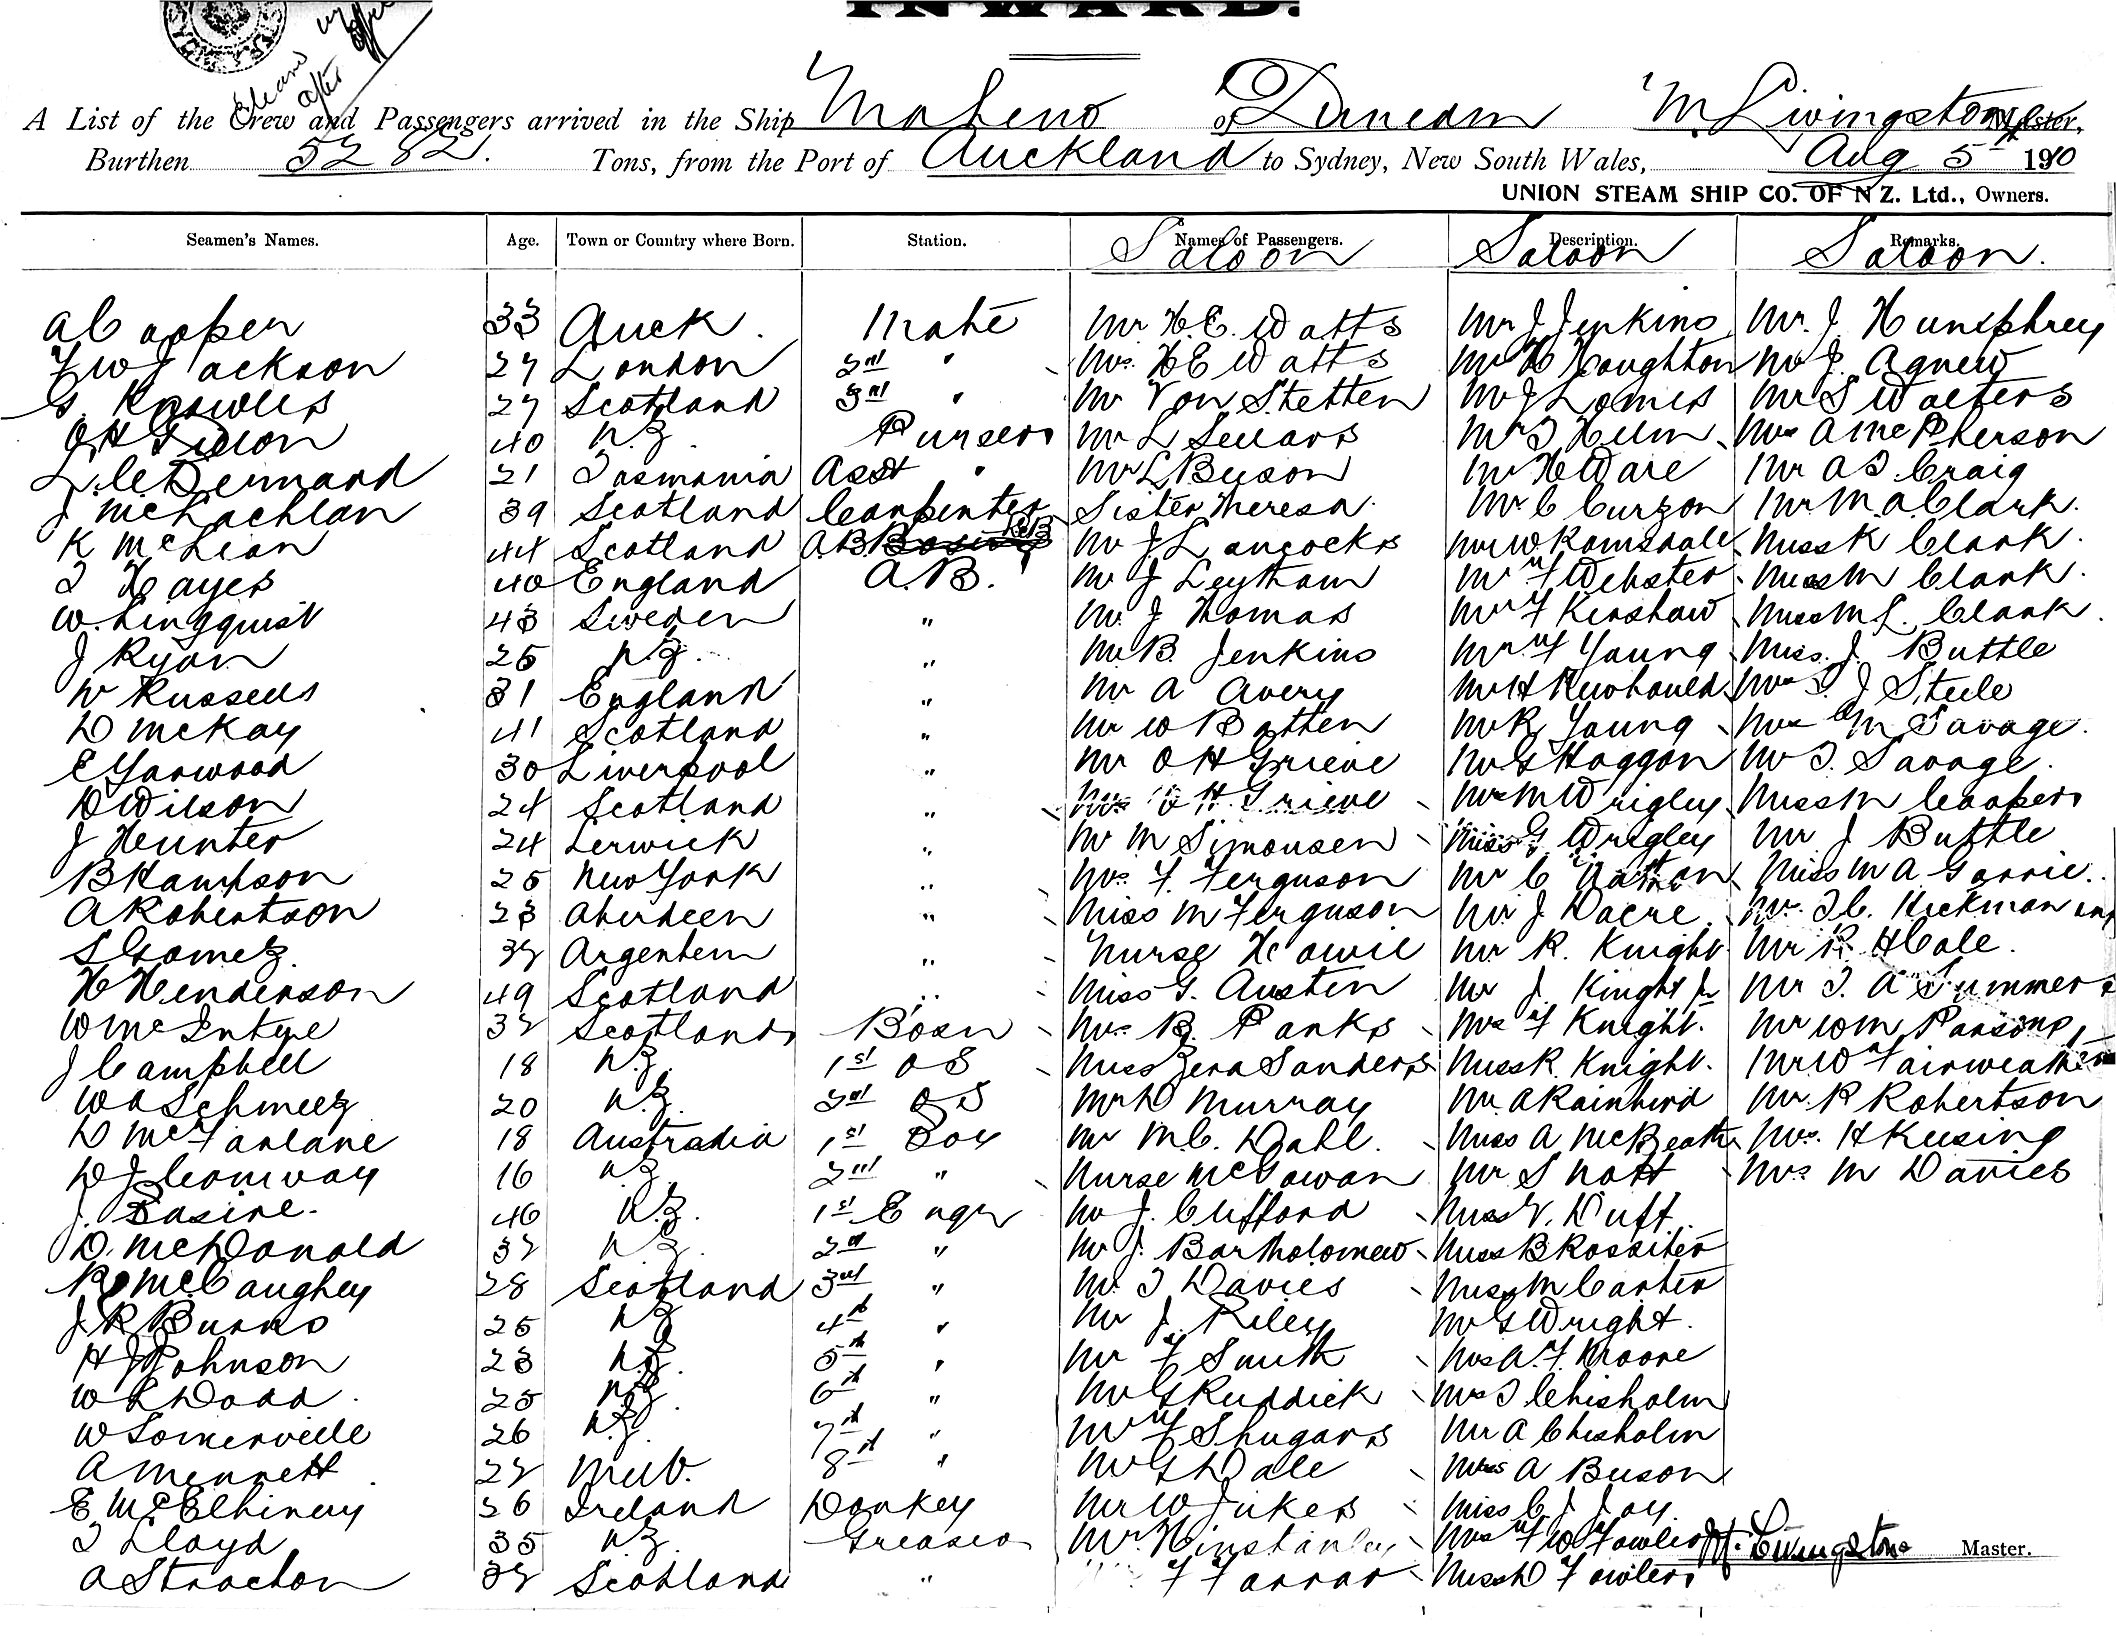 INWARD.
A List of the Crew and Passengers arrived in the Ship Maheno of Dunedin M. Livingstone Master,
Burthen 5282. Tons, from the Port of Auckland to Sydney, New South Wales, Aug 5th 1910
UNION STEAM SHIP CO. OF N Z. Ltd., Owners.
Seamen's Names. Age. Town or Country where Born. Station. Names of Passengers. Description. Remarks.
Saloon Saloon Saloon.
A Cooper 33 Auck. Mate Mr H.E. Watts Mr J Jenkins Mr. J Humphrey
F W Jackson 27 London 2nd " Mrs. H E Watts Mr H Houghton Mr J. Agnew
G. Knowles 27 Scotland 3rd " Mr Von Stetten Mr J Lomas Mr S Walters
40 N.Z. Purser Mr L Sellars Mr T Helm Mrs A McPherson
21 Tasmania Asst " Mr L Buson Mr H Dare Mr A T Craig
J McLachlan 39 Scotland Carpenter Sister Theresa. Mr C Curzon Mr M A Clark.
K McLean 44 Scotland A.B. Mr J Lancocks Mr W Ramsdale Miss K Clark.
T Hayes 40 England A.B. Mr J Leytham Mr F Webster Miss M Clark.
W. Lingquist 43 Sweden " Mr. J Thomas Mr F Kershaw Miss M L. Clark.
J Ryan 25 N.Z. " Mr B. Jenkins Mr F Young Miss. J. Buttle
W Russell 31 England " Mr A Avery Mr H Newbould Mrs T. J Steele
D McKay 41 Scotland " Mr W Batten Mr R Young Mrs M Savage.
E Yarwood 30 Liverpool " Mr O H Grieve Mr G Haggon Mr T. Savage.
D Wilson 24 Scotland " Mrs O H Grieve Mrs M Wrigley Miss M Cooper
J Hunter 24 Lerwick " Mr M Simonsen Miss G Wrigley Mr J Buttle
B Hampson 25 New York " Mrs. F. Ferguson Mr C Miss M A Gorrie.
A Robertson 23 Aberdeen " Miss M Ferguson Mr J Dacre Mr. T C. Hickman
S Gomez. 32 Argentein " Nurse Howie Mr R. Knight Mr R. H Cole.
H Henderson 49 Scotland " Miss G. Austen Mr J. Kinght Jr Mr T. A Summers
W McIntye 32 Scotland Bosn Mrs B. Parks Mrs F Knight. Mr Wm Parsons
J Campbell 18 N.Z. 1st OS Miss Zena Sanders Miss R. Knight. Mr W Fairweather
W A Schmeez 20 N.Z. 2nd OS Mr D Murray Mr. A Rainbird Mr. R Robertson
D McFarlane 18 Australia 1st Boy Mr M.C. Dahl. Miss A McBeath Mrs. H Keesing
D J Conway 16 N.Z. 2nd " Nurse McGowan Mr S Nott Mrs M Davies
J. Basire. 46 N.Z. 1st Engr Mr J. Clifford Miss V. Duff.
D. McDonald 32 N.Z. 2nd " Mr J. Bartholomew Miss B Rossiter
R McCaughey 28 Scotland 3rd " Mr. T Davies Miss M Carter
J R Burns 25 N.Z. 4th " Mr J. Riley Mr G Wright.
H J Johnson 23 N.Z. 5th " Mr F Smith Mrs A. F. Moore
W L Dodd. 25 N.Z. 6th " Mr G Ruddick Mrs T Chisholm
W Somerville 26 N.Z. 7th " Mr F Shugars Mr A Chisholm
A Mennett 22 Melb. 8th " Mr G Dale Miss A Buson
E McElhiney 26 Ireland Donkey Mr W Jukes Miss C J Joy.
T Lloyd 35 N.Z. Greaser Mr Hinstanley Mrs F W Fowler M. Livingstone Master.
A Strachon 32 Scotland " F Farrar Miss D Fowler